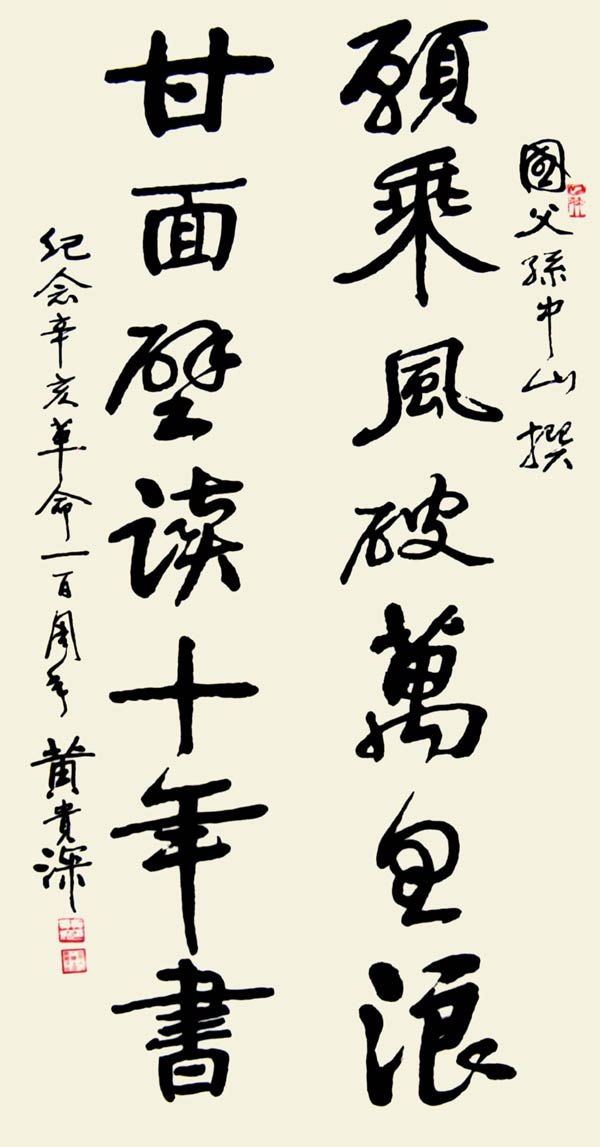 國父孫中山撰
願乘風破萬里浪
甘面壁读十年書
纪念辛亥革命一百周年 黄貴深